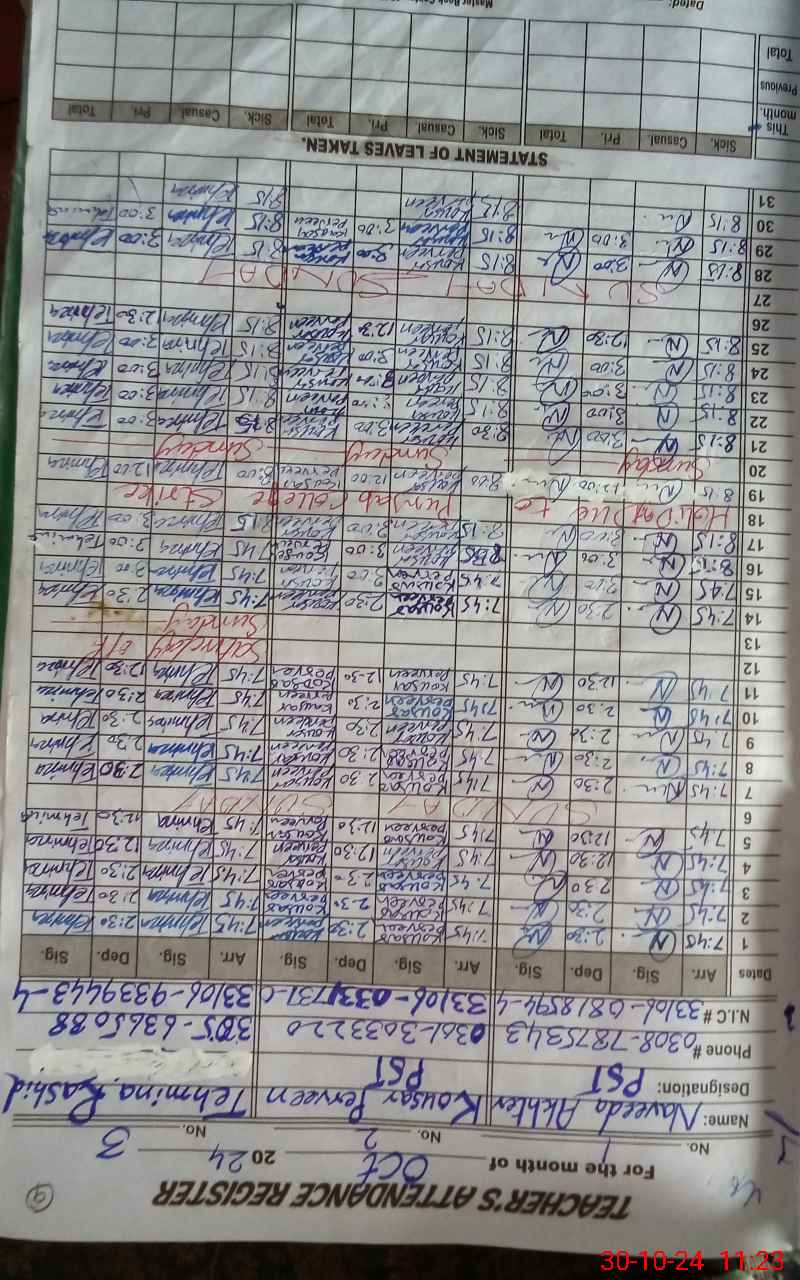 TEACHER'S ATTENDANCE REGISTER
For the month of Oct 2024
No. 1 No. 2 No. 3
Name: Naveeda Akhter Kousar Perveen Tehmina Rashid
Designation: PST PST
Phone # 0308-7875343 0301-3033220 305-6365088
N.I.C # 33106-0818594-4 33106-0331731- 33106-9339443-4
Dates Arr. Sig. Dep. Sig. Arr. Sig. Dep. Sig. Arr. Sig. Dep. Sig.
1 7:45 2:30 7:45 Kousar Perveen 2:30 Kousar Perveen 7:45 Tehmina 2:30 Tehmina
2 7:45 2:30 7:45 Kousar Perveen 2:30 Kousar Perveen 7:45 Tehmina 2:30 Tehmina
3 7:45 2:30 7:45 Kousar Perveen 2:30 Kousar Perveen 7:45 Tehmina 2:30 Tehmina
4 7:45 12:30 7:45 Kousar Perveen 12:30 Kousar Perveen 7:45 Tehmina 12:30 Tehmina
5 7:45 12:30 7:45 Kousar Perveen 12:30 Kousar Perveen 7:45 Tehmina 12:30 Tehmina
6 SUNDAY SUNDAY
7 7:45 2:30 7:45 Kousar Perveen 2:30 Kousar Perveen 7:45 Tehmina 2:30 Tehmina
8 7:45 2:30 7:45 Kousar Perveen 2:30 Kousar Perveen 7:45 Tehmina 2:30 Tehmina
9 7:45 2:30 7:45 Kousar Perveen 2:30 Kousar Perveen 7:45 Tehmina 2:30 Tehmina
10 7:45 2:30 7:45 Kousar Perveen 2:30 Kousar Perveen 7:45 Tehmina 2:30 Tehmina
11 7:45 12:30 7:45 Kousar Perveen 12:30 Kousar Perveen 7:45 Tehmina 12:30 Tehmina
12 Saturday off
13 Sunday
14 7:45 2:30 7:45 Kousar Perveen 2:30 Kousar Perveen 7:45 Tehmina 2:30 Tehmina
15 7:45 3:00 7:45 Kousar Perveen 3:00 Kousar Perveen 7:45 Tehmina 3:00 Tehmina
16 8:15 3:00 Kousar Perveen 3:00 Kousar Perveen 7:45 Tehmina 3:00 Tehmina
17 8:15 3:00 8:15 Kousar Perveen 3:00 Kousar Perveen 8:15 Tehmina 3:00 Tehmina
18 Holiday Due to Punjab College Strike
19 8:15 12:00 8:00 Kousar Perveen 12:00 Kousar Perveen 8:00 Tehmina 12:00 Tehmina
20 Sunday Sunday Sunday
21 8:15 3:00 8:30 Kousar Perveen 3:00 Kousar Perveen 8:15 Tehmina 3:00 Tehmina
22 8:15 3:00 8:15 Kousar Perveen 3:00 Kousar Perveen 8:15 Tehmina 3:00 Tehmina
23 8:15 3:00 8:15 Kousar Perveen 3:00 Kousar Perveen 8:15 Tehmina 3:00 Tehmina
24 8:15 3:00 8:15 Kousar Perveen 3:00 Kousar Perveen 8:15 Tehmina 3:00 Tehmina
25 8:15 12:30 8:15 Kousar Perveen 12:30 Kousar Perveen 8:15 Tehmina 12:30 Tehmina
26
27 SUNDAY SUNDAY
28 8:15 3:00 8:15 Kousar Perveen 3:00 Kousar Perveen 8:15 Tehmina 3:00 Tehmina
29 8:15 3:00 8:15 Kousar Perveen 3:00 Kousar Perveen 8:15 Tehmina 3:00 Tehmina
30 8:15 8:15 Kousar Perveen 8:15 Tehmina
31
STATEMENT OF LEAVES TAKEN.
Sick. Casual Pri. Total Sick. Casual Pri. Total Sick. Casual Pri. Total
This month.
Previous
Total
Dated:
30-10-24 11:23